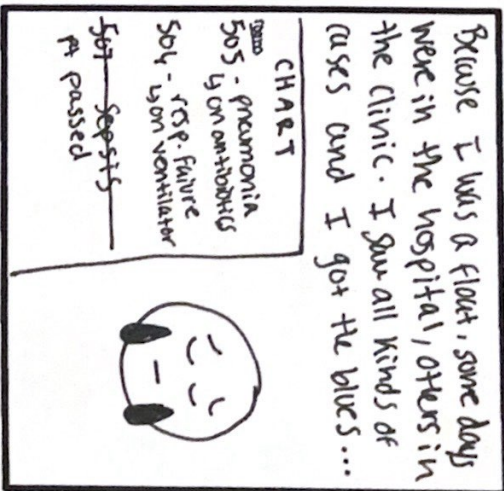 Because I was a float, some days
were in the hospital, others in
the clinic. I saw all kinds of
cases and I got the blues...
CHART
505 - pneumonia
↳ on antibiotics
504 - resp. failure
↳ on ventilator
507 - sepsis
pt passed